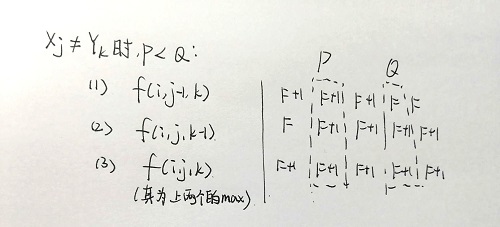 Xj ≠ Yk 时, P < Q:
P Q
(1) f(i,j-1,k) F+1 F+1 F+1 F F
(2) f(i,j,k-1) F F+1 F+1 F+1 F+1
(3) f(i,j,k) F+1 F+1 F+1 F+1 F+1
(其为上两个的max)